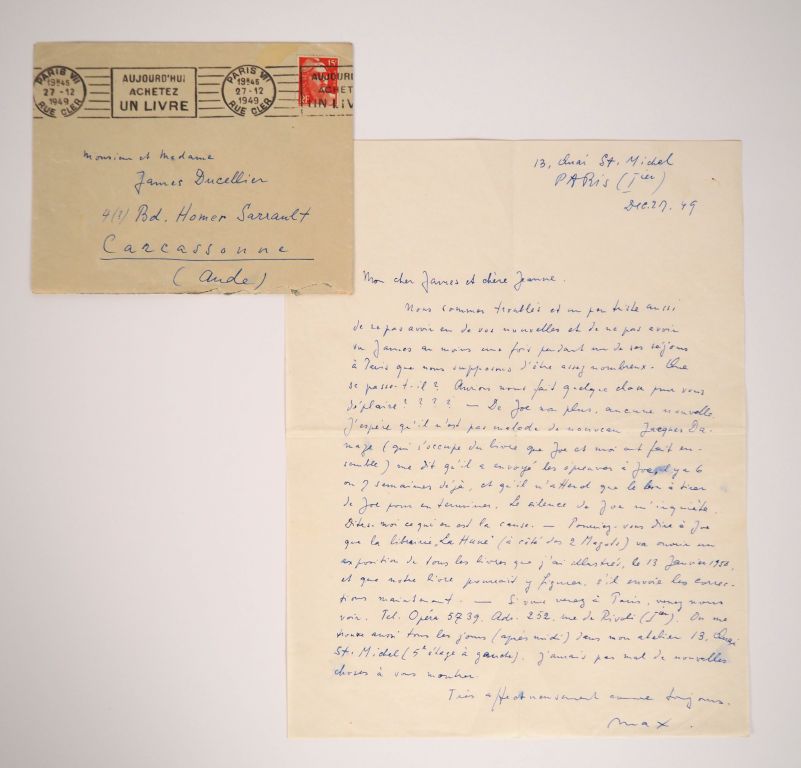 PARIS VII
19H45
27-12
1949
RUE CLER
AUJOURD'HUI
ACHETEZ
UN LIVRE
PARIS VII
19H45
27-12
1949
RUE CLER
15F
RF
AUJOURD
ACHET
UN LIV
Monsieur et Madame
James Ducellier
4(3) Bd. Homer Sarrault
Carcassonne
(Aude)
13, Quai St. Michel
PARIS (Ier)
Dec. 27. 49
Mon cher James et chère Jeanne.
Nous sommes troublés et un peu triste aussi
de ne pas avoir eu de vos nouvelles et de ne pas avoir
vu James au moins une fois pendant un de ses séjours
à Paris que nous supposons d'être assez nombreux. Que
se passe-t-il? Aurions nous fait quelque chose pour vous
déplaire???? — De Joe non plus, aucune nouvelle.
J'espère qu'il n'est pas malade de nouveau. Jacques Da-
mase (qui s'occupe du livre que Joe et moi ont fait en-
semble) me dit qu'il a envoyé les épreuves à Joe, il y a 6
ou 7 semaines déjà, et qu'il n'attend que le bon à tirer
de Joe pour en terminer. Le silence de Joe m'inquiète.
Dites-moi ce qui en est la cause. — Pourriez-vous dire à Joe
que la librairie „La Hune" (à côté des 2 Magots) va ouvrir un
exposition de tous les livres que j'ai illustrés, le 13 Janvier 1950,
et que notre livre pourrait y figurer, s'il envoie les correc-
tions maintenant. — Si vous venez à Paris, venez nous
voir. Tel. Opéra 5739. Adr. 252, rue de Rivoli (Ier). On me
trouve aussi tous les jours (après midi) dans mon atelier 13, Quai
St. Michel (5e étage à gauche). J'aurais pas mal de nouvelles
choses à vous montrer.
Très affectueusement comme toujours.
max.